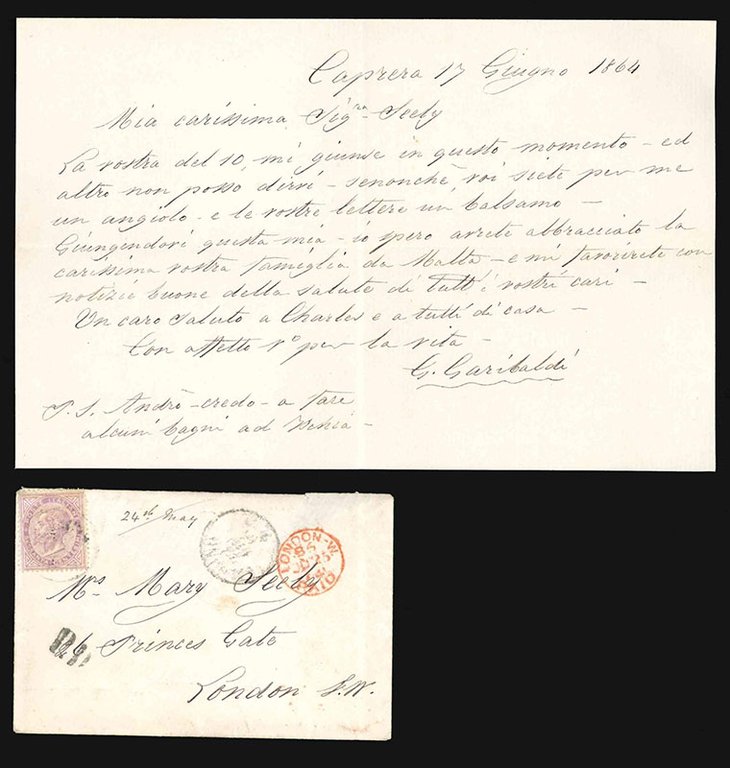 Caprera 17 Giugno 1864
Mia carissima Sigra Seely
La vostra del 10, mi giunse in questo momento - ed
altro non posso dirvi - senonchè, voi siete per me
un angiolo - e le vostre lettere un balsamo -
Giungendovi questa mia - io spero avrete abbracciato la
carissima vostra famiglia da Malta - e mi favorirete con
notizie buone della salute di tutti i vostri cari -
Un caro saluto a Charles e a tutti di casa -
Con affetto Vo per la vita -
G. Garibaldi
P.S. Andrò - credo - a fare
alcuni bagni ad Ischia -
24th May
LONDON-W
PAID
Mrs Mary Seely
26 Princes Gate
London S.W.